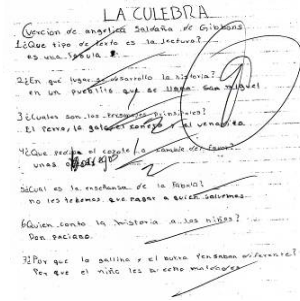 LA CULEBRA
Cuercion de angelica Saldaña de Gibbons
1¿Que tipo de texto es la lectura?
es una fabula
2¿En que lugar se desarrollo la historia?
en un pueblito que se llama san miguel
3¿Cuales son los personajes prinsipales?
El perro, la gata, el conejo y al venadita
4¿Que pedia el coyote a cambie del favor?
unas
5¿Cual es la enseñansa de la fabula?
no les tekemos que pagar a quien salvemos.
6¿Quien conto la historia a los niños?
Don paciano
3¿Por que la gallina y el burro pensaban diferente?
Por que el niño les a echo maldades